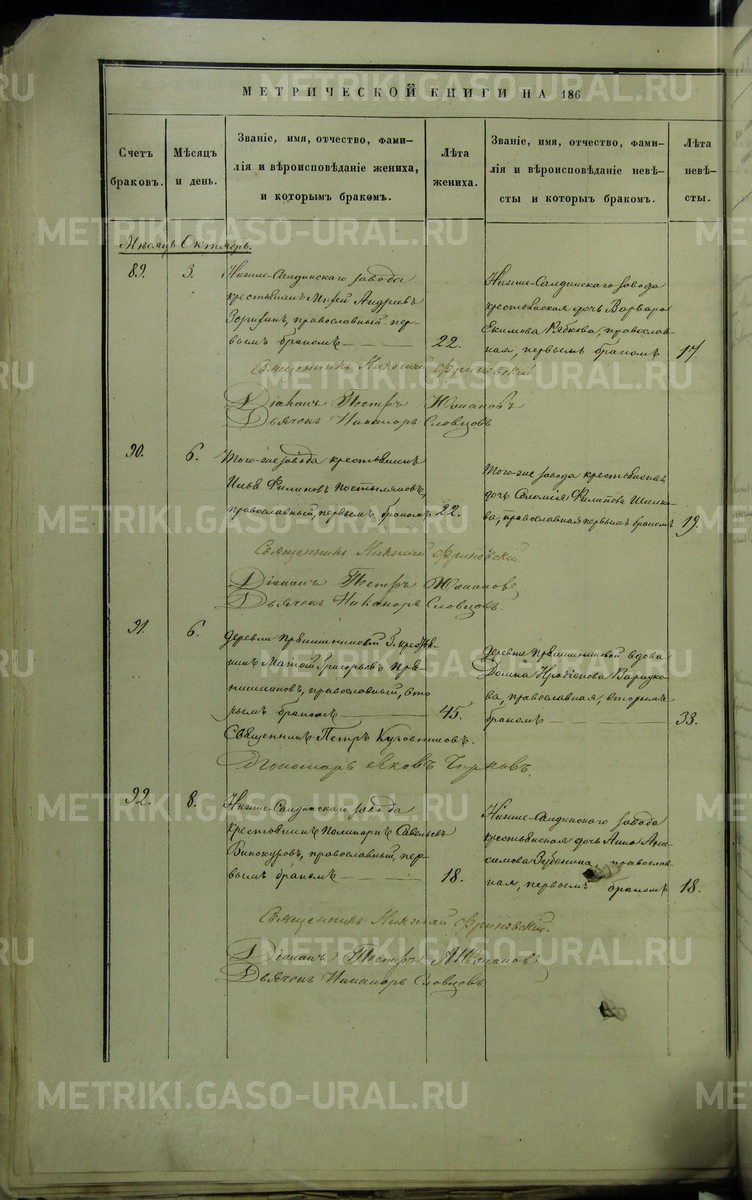 МЕТРИЧЕСКОЙ КНИГИ НА 186
Счетъ браковъ.
Мѣсяцъ и день.
Званіе, имя, отчество, фами-
лія и вѣроисповѣданіе жениха,
и которымъ бракомъ.
Лѣта жениха.
Званіе, имя, отчество, фами-
лія и вѣроисповѣданіе невѣ-
сты и которыъ бракомъ.
Лѣта невѣ-
сты.
Мѣсяцъ Октябрь.
89. 3.
Нижне-Салдинскаго завода
крестьянинъ Андреевъ
православный пер-
вымъ бракомъ 22.
Нижне-Салдинскаго завода
крестьянская дочь Варвара
Екимова православ-
ная, первымъ бракомъ 17.
Священникъ Николай Финовскій
Діаконъ Петръ
Дьячекъ Никаноръ Словцовъ
90. 6.
Того-же завода крестьянинъ
Илья Филиповъ Постыляковъ,
православный, первымъ бракомъ 22.
Того-же завода крестьянская
дочь Саломія Филипова
православная первымъ бракомъ 19.
Священникъ Николай Финовскій
Діаконъ Петръ
Дьячекъ Никаноръ Словцовъ.
91. 6.
Деревни
Григорьевъ
православный, вто-
рымъ бракомъ 45.
Деревни вдова
Домна
православная, вторымъ
бракомъ 33.
Священникъ Петръ Кузовниковъ.
Пономарь Яковъ
92. 8.
Нижне-Салдинскаго завода
крестьянинъ Савельевъ
Винокуровъ, православный, пер-
вымъ бракомъ 18.
Нижне-Салдинскаго завода
крестьянская дочь Анна Ани-
симова Зубенина, православ-
ная, первымъ бракомъ 18.
Священникъ Николай Финовскій.
Діаконъ Петръ
Дьячекъ Никаноръ Словцовъ
METRIKI.GASO-URAL.RU